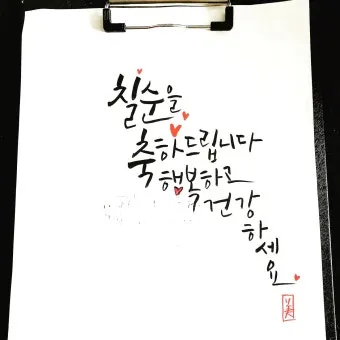 칠순을
축하드립니다
행복하고
건강
하
세
요
美